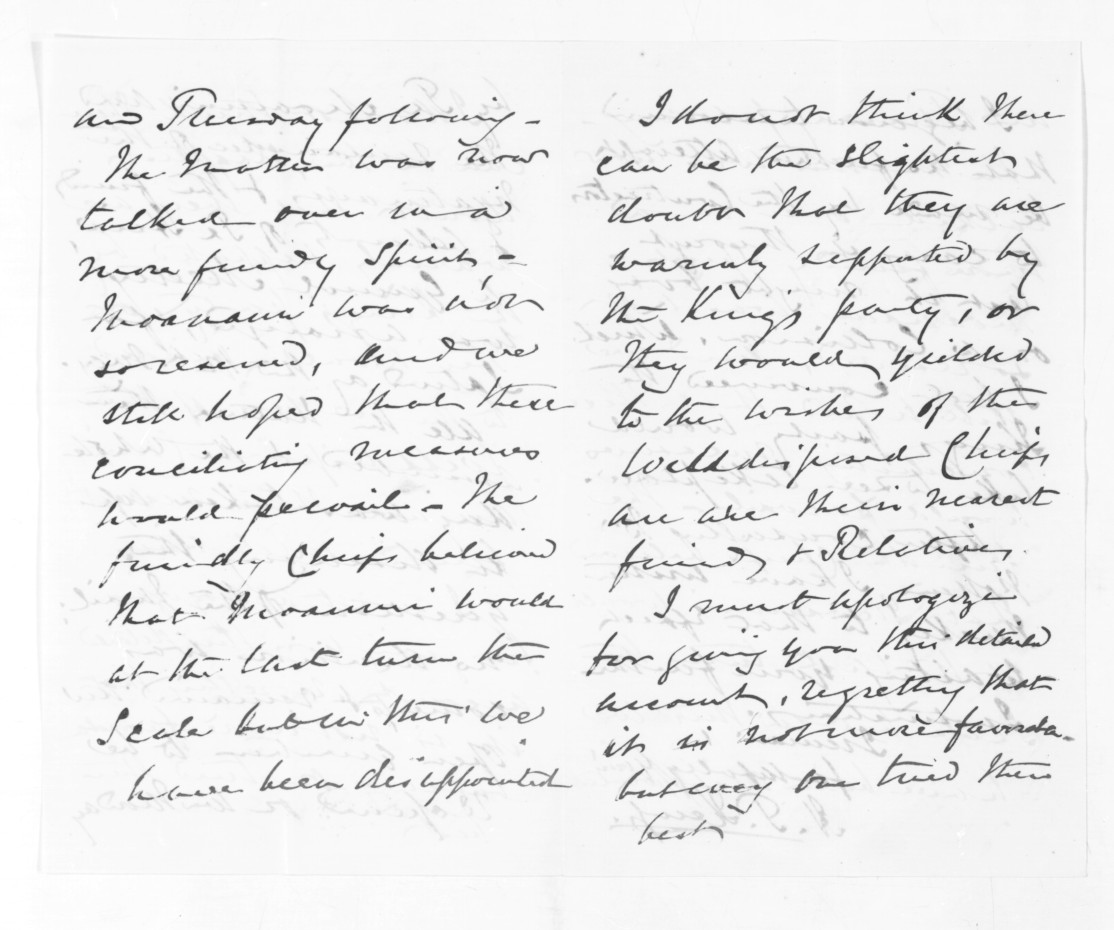 and Tuesday following -
The Matter was now
talked over in a
more friendly Spirit, -
Moananui was not
so reserved, and we
still hoped that these
conciliating measures
would prevail - The
friendly Chiefs believed
that Moananui would
at the last turn the
Scale but in this we
have been disappointed
I do not think there
can be the slightest
doubt that they are
warmly supported by
the King's party, or
they would yielded
to the wishes of the
Well disposed Chiefs
are their nearest
friends & Relatives.
I must apologize
for giving you this detailed
account, regretting that
it is not more favorda-
but every one tried there
best